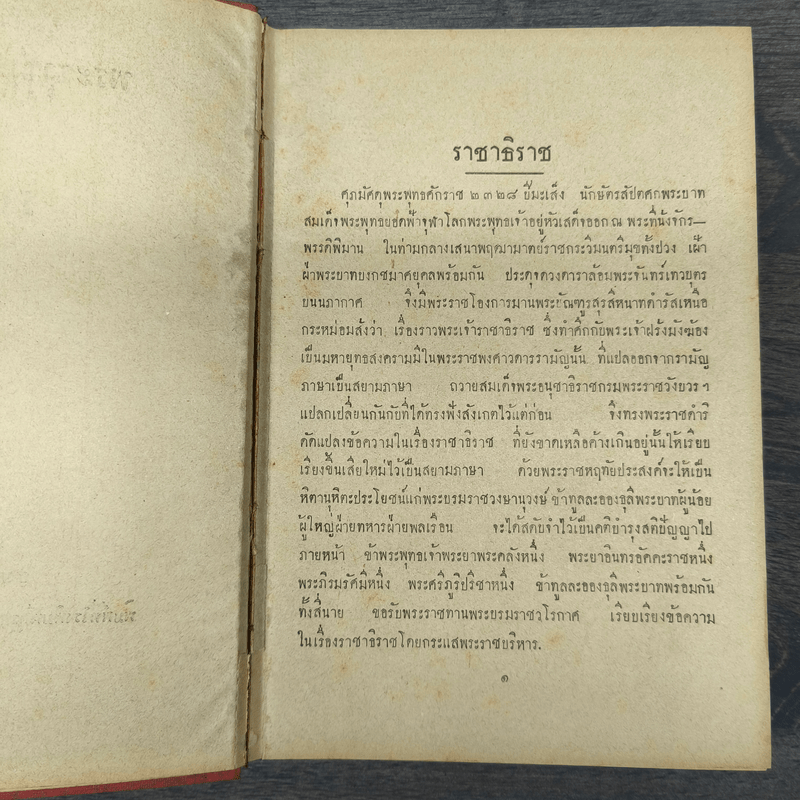 ราชาธิราช
ศุภมัศดุพระพุทธศักราช ๒๓๒๘ ปีมะเส็ง นักษัตรสัปตศกพระบาท
สมเด็จพระพุทธยอดฟ้าจุฬาโลกพระพุทธเจ้าอยู่หัวเสด็จออก ณ พระที่นั่งจักร—
พรรดิพิมาน ในท่ามกลางเสนาพฤฒามาตย์ราชกระวีมนตรีมุขทั้งปวง เฝ้า
ฝ่าพระบาทยงกชมาศยุคลพร้อมกัน ประดุจดวงดาราล้อมพระจันทร์เทวบุตร
บนนภากาศ จึงมีพระราชโองการมานพระบัณฑูรสุรสีหนาทดำรัสเหนือ
กระหม่อมสั่งว่า เรื่องราวพระเจ้าราชาธิราช ซึ่งทำศึกกับพระเจ้าฝรั่งมังฆ้อง
เป็นมหายุทธสงครามมีในพระราชพงศาวดารรามัญนั้น ที่แปลออกจากรามัญ
ภาษาเป็นสยามภาษา ถวายสมเด็จพระอนุชาธิราชกรมพระราชวังบวร ฯ
แปลกเปลี่ยนกันกับที่ได้ทรงฟังสังเกตไว้แต่ก่อน จึงทรงพระราชดำริ
ดัดแปลงข้อความในเรื่องราชาธิราช ที่ยังขาดเหลือค้างเกินอยู่นั้นให้เรียบ
เรียงขึ้นเสียใหม่ไว้เป็นสยามภาษา ด้วยพระราชหฤทัยประสงค์จะให้เป็น
หิตานุหิตะประโยชน์แก่พระบรมราชวงษานุวงษ์ ข้าทูลละอองธุลีพระบาทผู้น้อย
ผู้ใหญ่ฝ่ายทหารฝ่ายพลเรือน จะได้สดับจำไว้เป็นคติบำรุงสติปัญญาไป
ภายหน้า ข้าพระพุทธเจ้าพระยาพระคลังหนึ่ง พระยาอินทรอัคคะราชหนึ่ง
พระภิรมรัศมีหนึ่ง พระศรีภูริปรีชาหนึ่ง ข้าทูลละอองธุลีพระบาทพร้อมกัน
ทั้งสี่นาย ขอรับพระราชทานพระบรมราชวโรกาศ เรียบเรียงข้อความ
ในเรื่องราชาธิราชโดยกระแสพระราชบริหาร.
๑